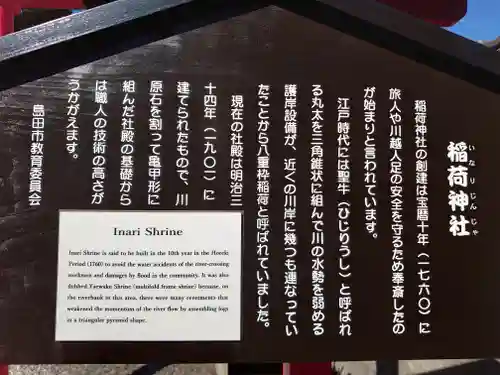 稲荷神社
いなりじんじゃ
稲荷神社の創建は宝暦十年（一七六〇）に
旅人や川越人足の安全を守るため奉斎したの
が始まりと言われています。
江戸時代には聖牛（ひじりうし）と呼ばれ
る丸太を三角錐状に組んで川の水勢を弱める
護岸設備が、近くの川岸に幾つも連なってい
たことから八重枠稲荷と呼ばれていました。
現在の社殿は明治三
十四年（一九〇一）に
建てられたもので、川
原石を割って亀甲形に
組んだ社殿の基礎から
は職人の技術の高さが
うかがえます。
島田市教育委員会
Inari Shrine
Inari Shrine is said to be built in the 10th year in the Horeki
Period (1760) to avoid the water accidents of the river-crossing
workmen and damages by flood in the community. It was also
dubbed Yaewaku Shrine (manifold frame shrine) because, on
the riverbank in this area, there were many revetments that
weakened the momentum of the river flow by assembling logs
in a triangular pyramid shape.